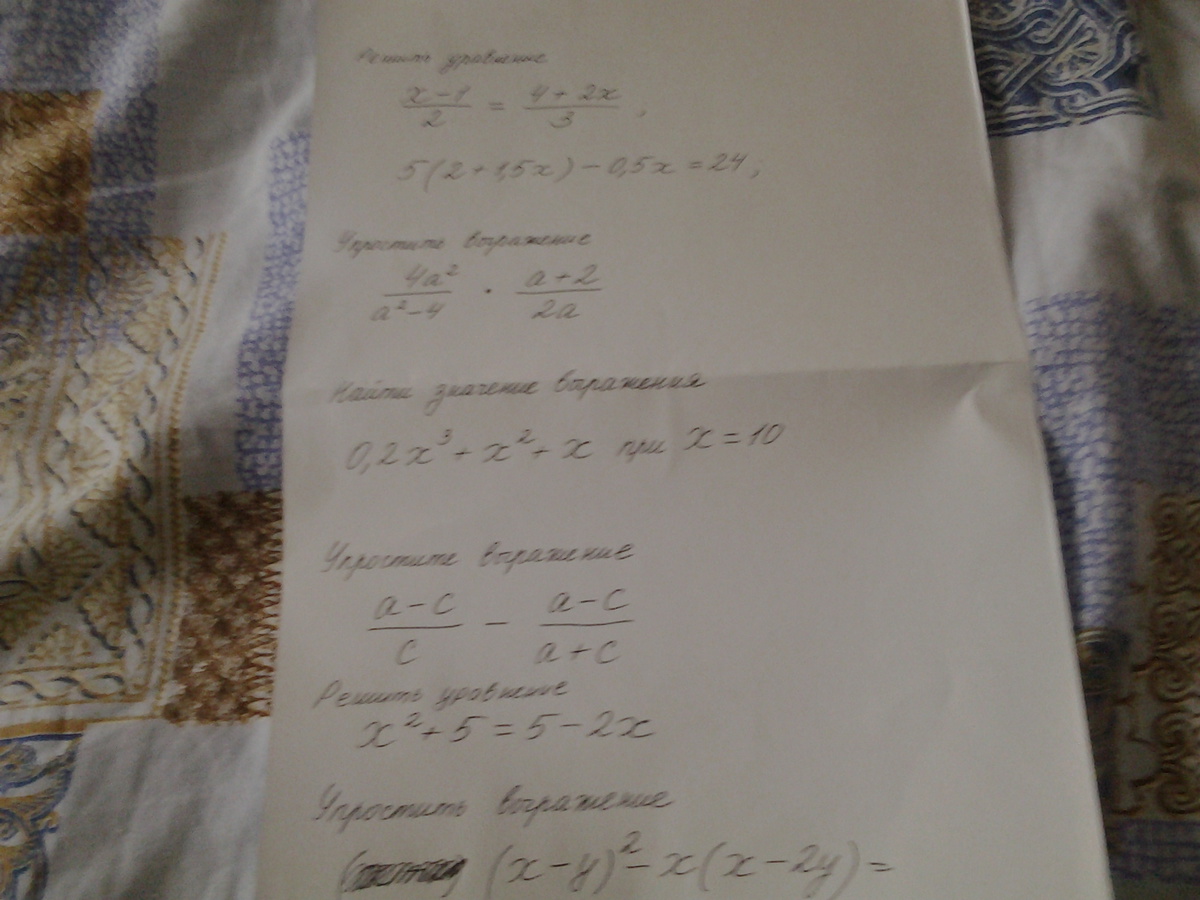 Решить уравнение
x-1/2 = 4+2x/3,
5(2+1,5x)-0,5x=24;
Упростить выражение
4a²/a²-4 · a+2/2a
Найти значение выражения
0,2x³+x²+x при x=10
Упростите выражение
a-c/c - a-c/a+c
Решить уровнение
x²+5=5-2x
Упростить выражение
(x-y)²-x(x-2y)=